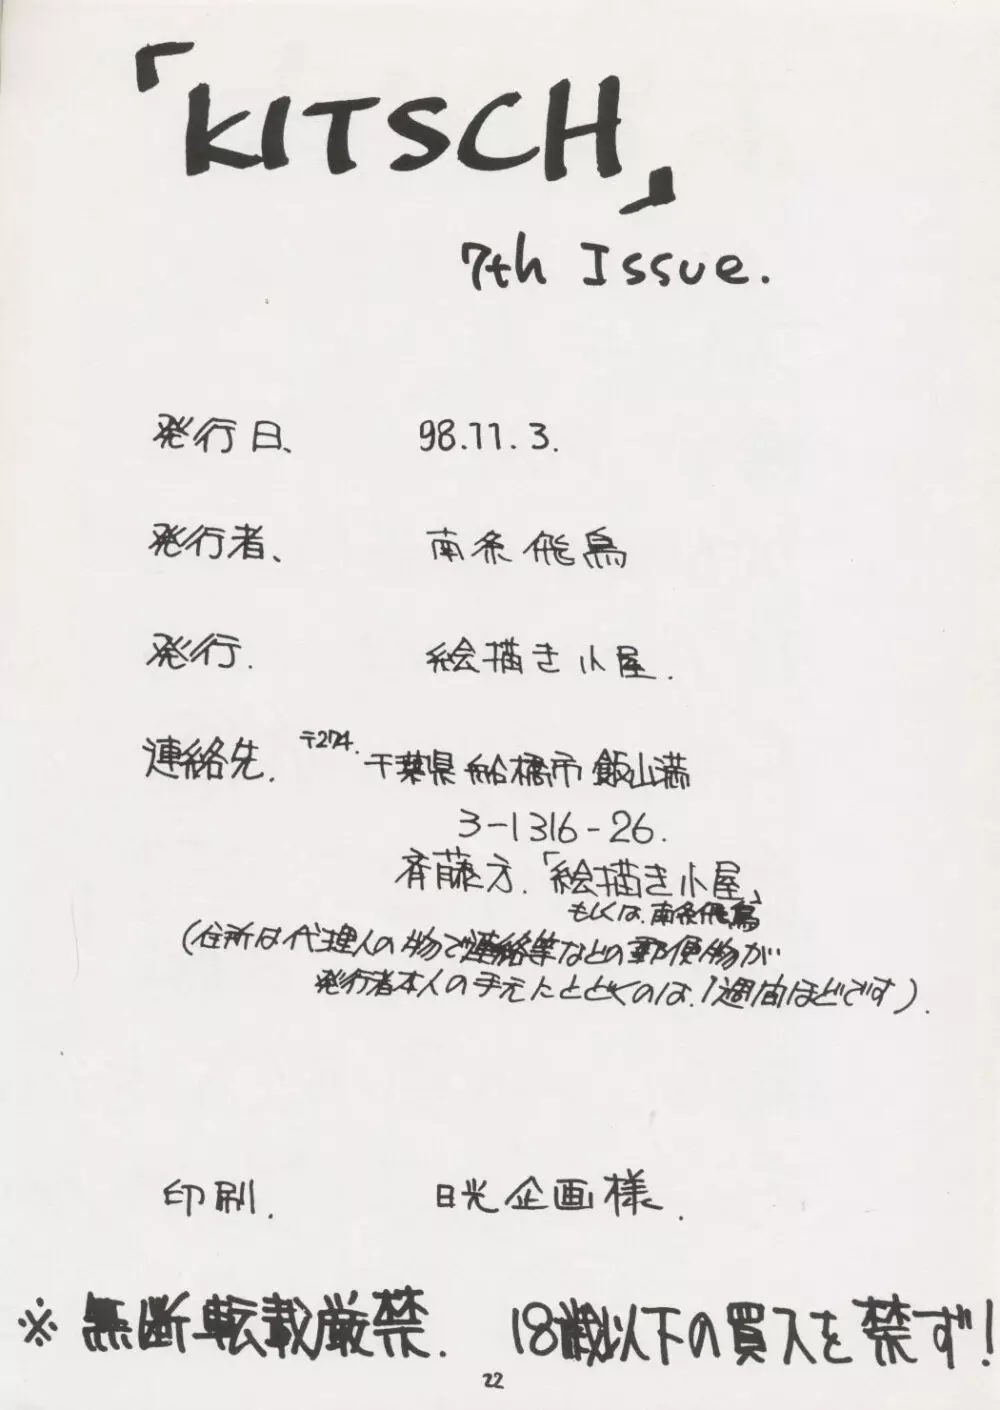 「KITSCH」
7th Issue.
発行日、 98.11.3.
発行者、 南条飛鳥
発行. 絵描き小屋.
連絡先. 〒274. 千葉県船橋市飯山満
3-1316-26.
斉藤方.「絵描き小屋」
もしくは、南条飛鳥
(住所は代理人の物で連絡等などの郵便物が
発行者本人の手元にとどくのは、1週間ほどです).
印刷. 日光企画様.
※無断転載厳禁. 18歳以下の買入を禁ず!
22